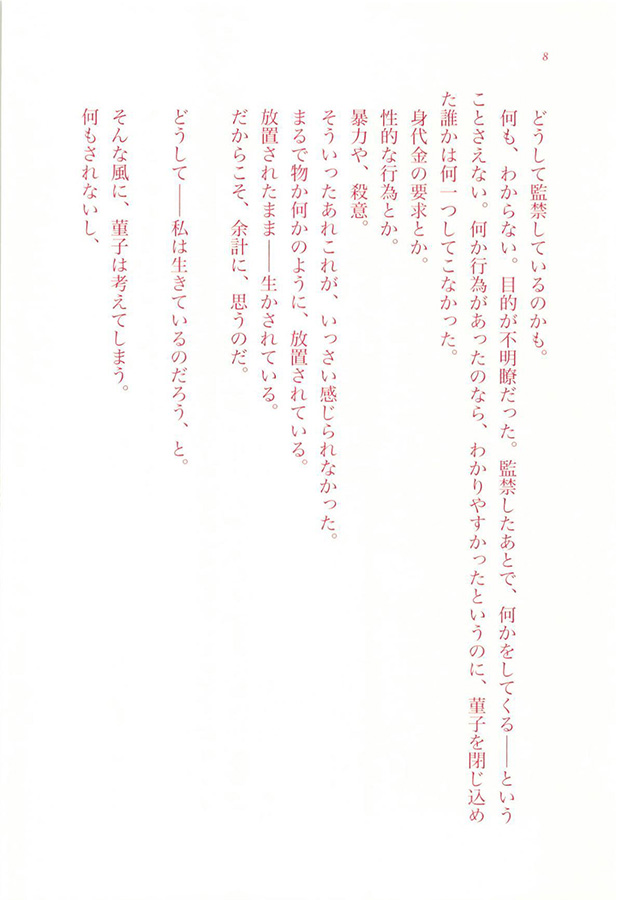 8
どうして監禁しているのかも。
何も、わからない。目的が不明瞭だった。監禁したあとで、何かをしてくる――という
ことさえない。何か行為があったのなら、わかりやすかったというのに、菫子を閉じ込め
た誰かは何一つしてこなかった。
身代金の要求とか。
性的な行為とか。
暴力や、殺意。
そういったあれこれが、いっさい感じられなかった。
まるで物か何かのように、放置されている。
放置されたまま――生かされている。
だからこそ、余計に、思うのだ。
どうして――私は生きているのだろう、と。
そんな風に、菫子は考えてしまう。
何もされないし、